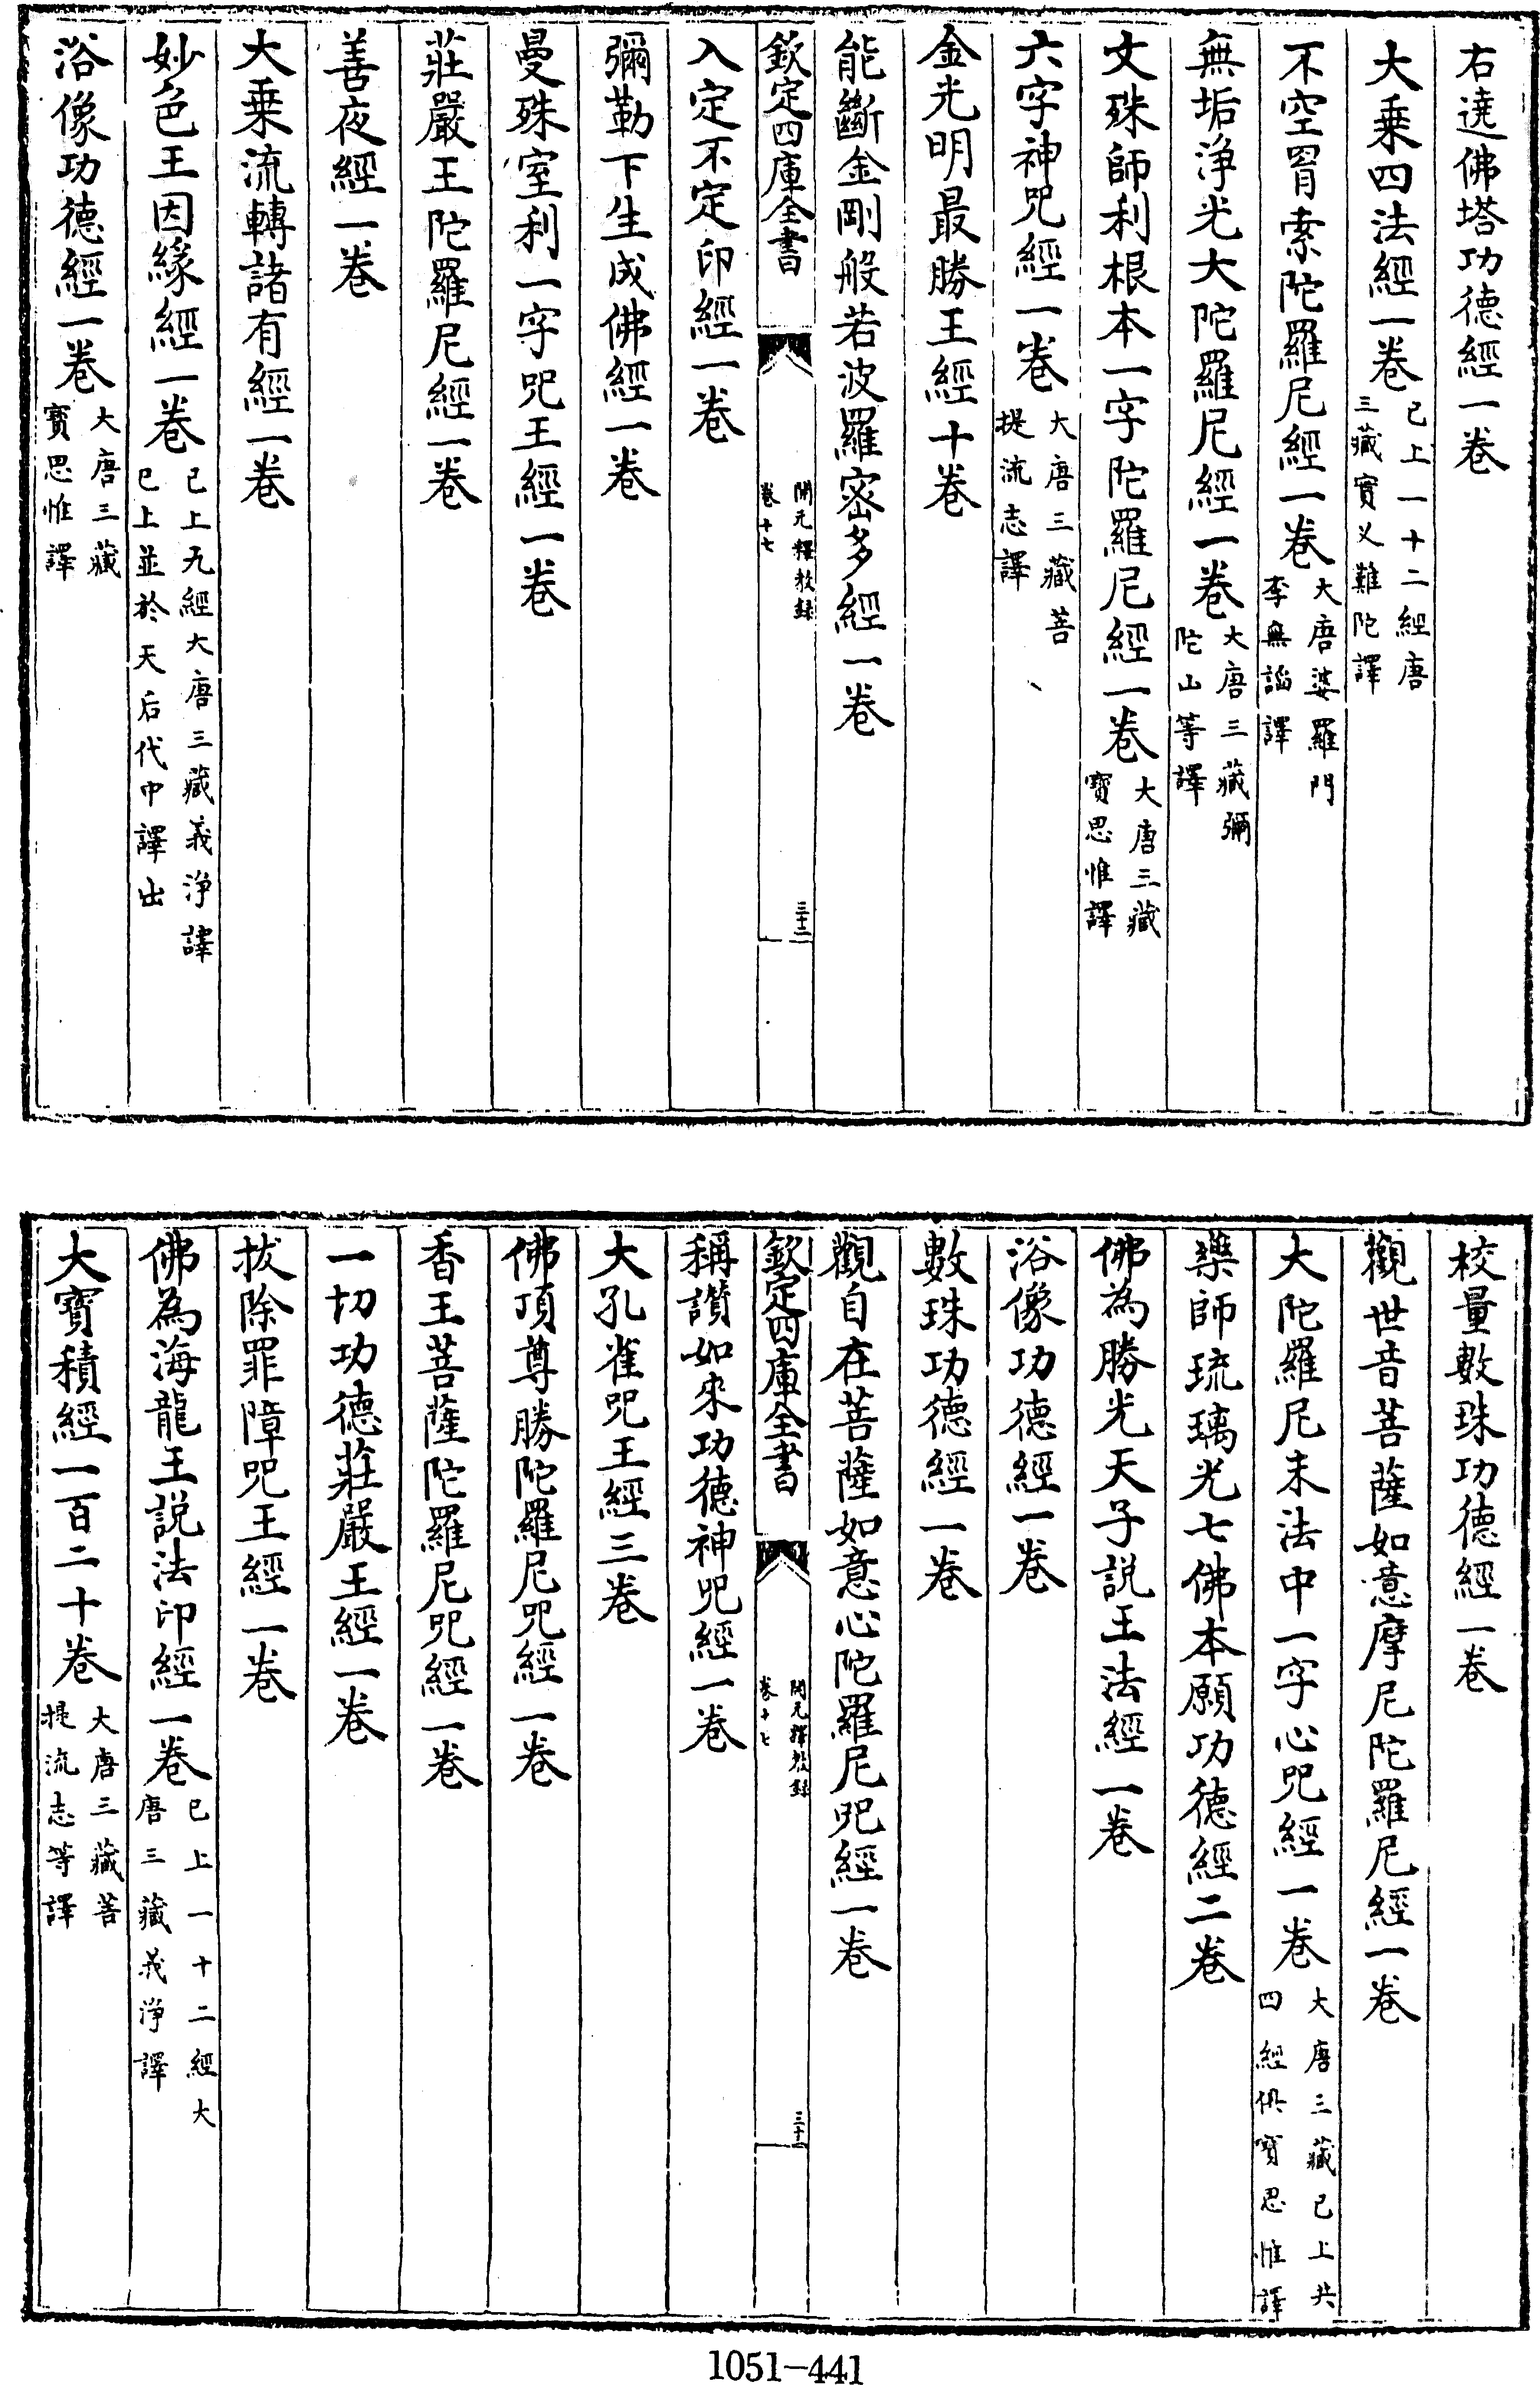 右遶佛塔功德經一卷
大乗四法經一卷已上一十二經唐三藏實乂難陀譯
不空罥索陀羅尼經一卷大唐婆羅門李無諂譯
無垢淨光大陀羅尼經一卷大唐三藏彌陀山等譯
文殊師利根本一字陀羅尼經一卷大唐三藏寶思惟譯
六字神咒經一卷大唐三藏菩提流志譯
金光明最勝王經十卷
能斷金剛般若波羅宻多經一卷
欽定四庫全書 開元釋教録卷十七 三十二
入定不定印經一卷
彌勒下生成佛經一卷
曼殊室利一字咒王經一卷
莊嚴王陀羅尼經一卷
善夜經一卷
大乗流轉諸有經一卷
妙色王因緣經一卷已上九經大唐三藏義淨譯已上並於天后代中譯出
浴像功德經一卷大唐三藏寶思惟譯
校量數珠功德經一卷
觀世音菩薩如意摩尼陀羅尼經一卷
大陀羅尼末法中一字心咒經一卷大唐三藏已上共四經俱寶思惟譯
藥師琉璃光七佛本願功德經二卷
佛為勝光天子説王法經一卷
浴像功德經一卷
數珠功德經一卷
觀自在菩薩如意心陀羅尼咒經一卷
欽定四庫全書 開元釋教録卷十七 三十一
稱讚如來功德神咒經一卷
大孔雀咒王經三卷
佛頂尊勝陀羅尼咒經一卷
香王菩薩陀羅尼咒經一卷
一切功德莊嚴王經一卷
拔除罪障咒王經一卷
佛為海龍王説法印經一卷已上一十二經大唐三藏義淨譯
大寶積經一百二十卷大唐三藏菩提流志等譯
1051-441